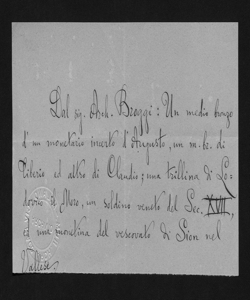 Dal sig. Arch. Broggi: Un medio bronzo
d'un monetario incerto d'Augusto, un m.br. di
Tiberio ed altro di Claudio; una trillina di Lo-
dovico il Moro, un soldino veneto del Sec. XVII,
ed una monetina del vescovato di Sion nel
Vallese.